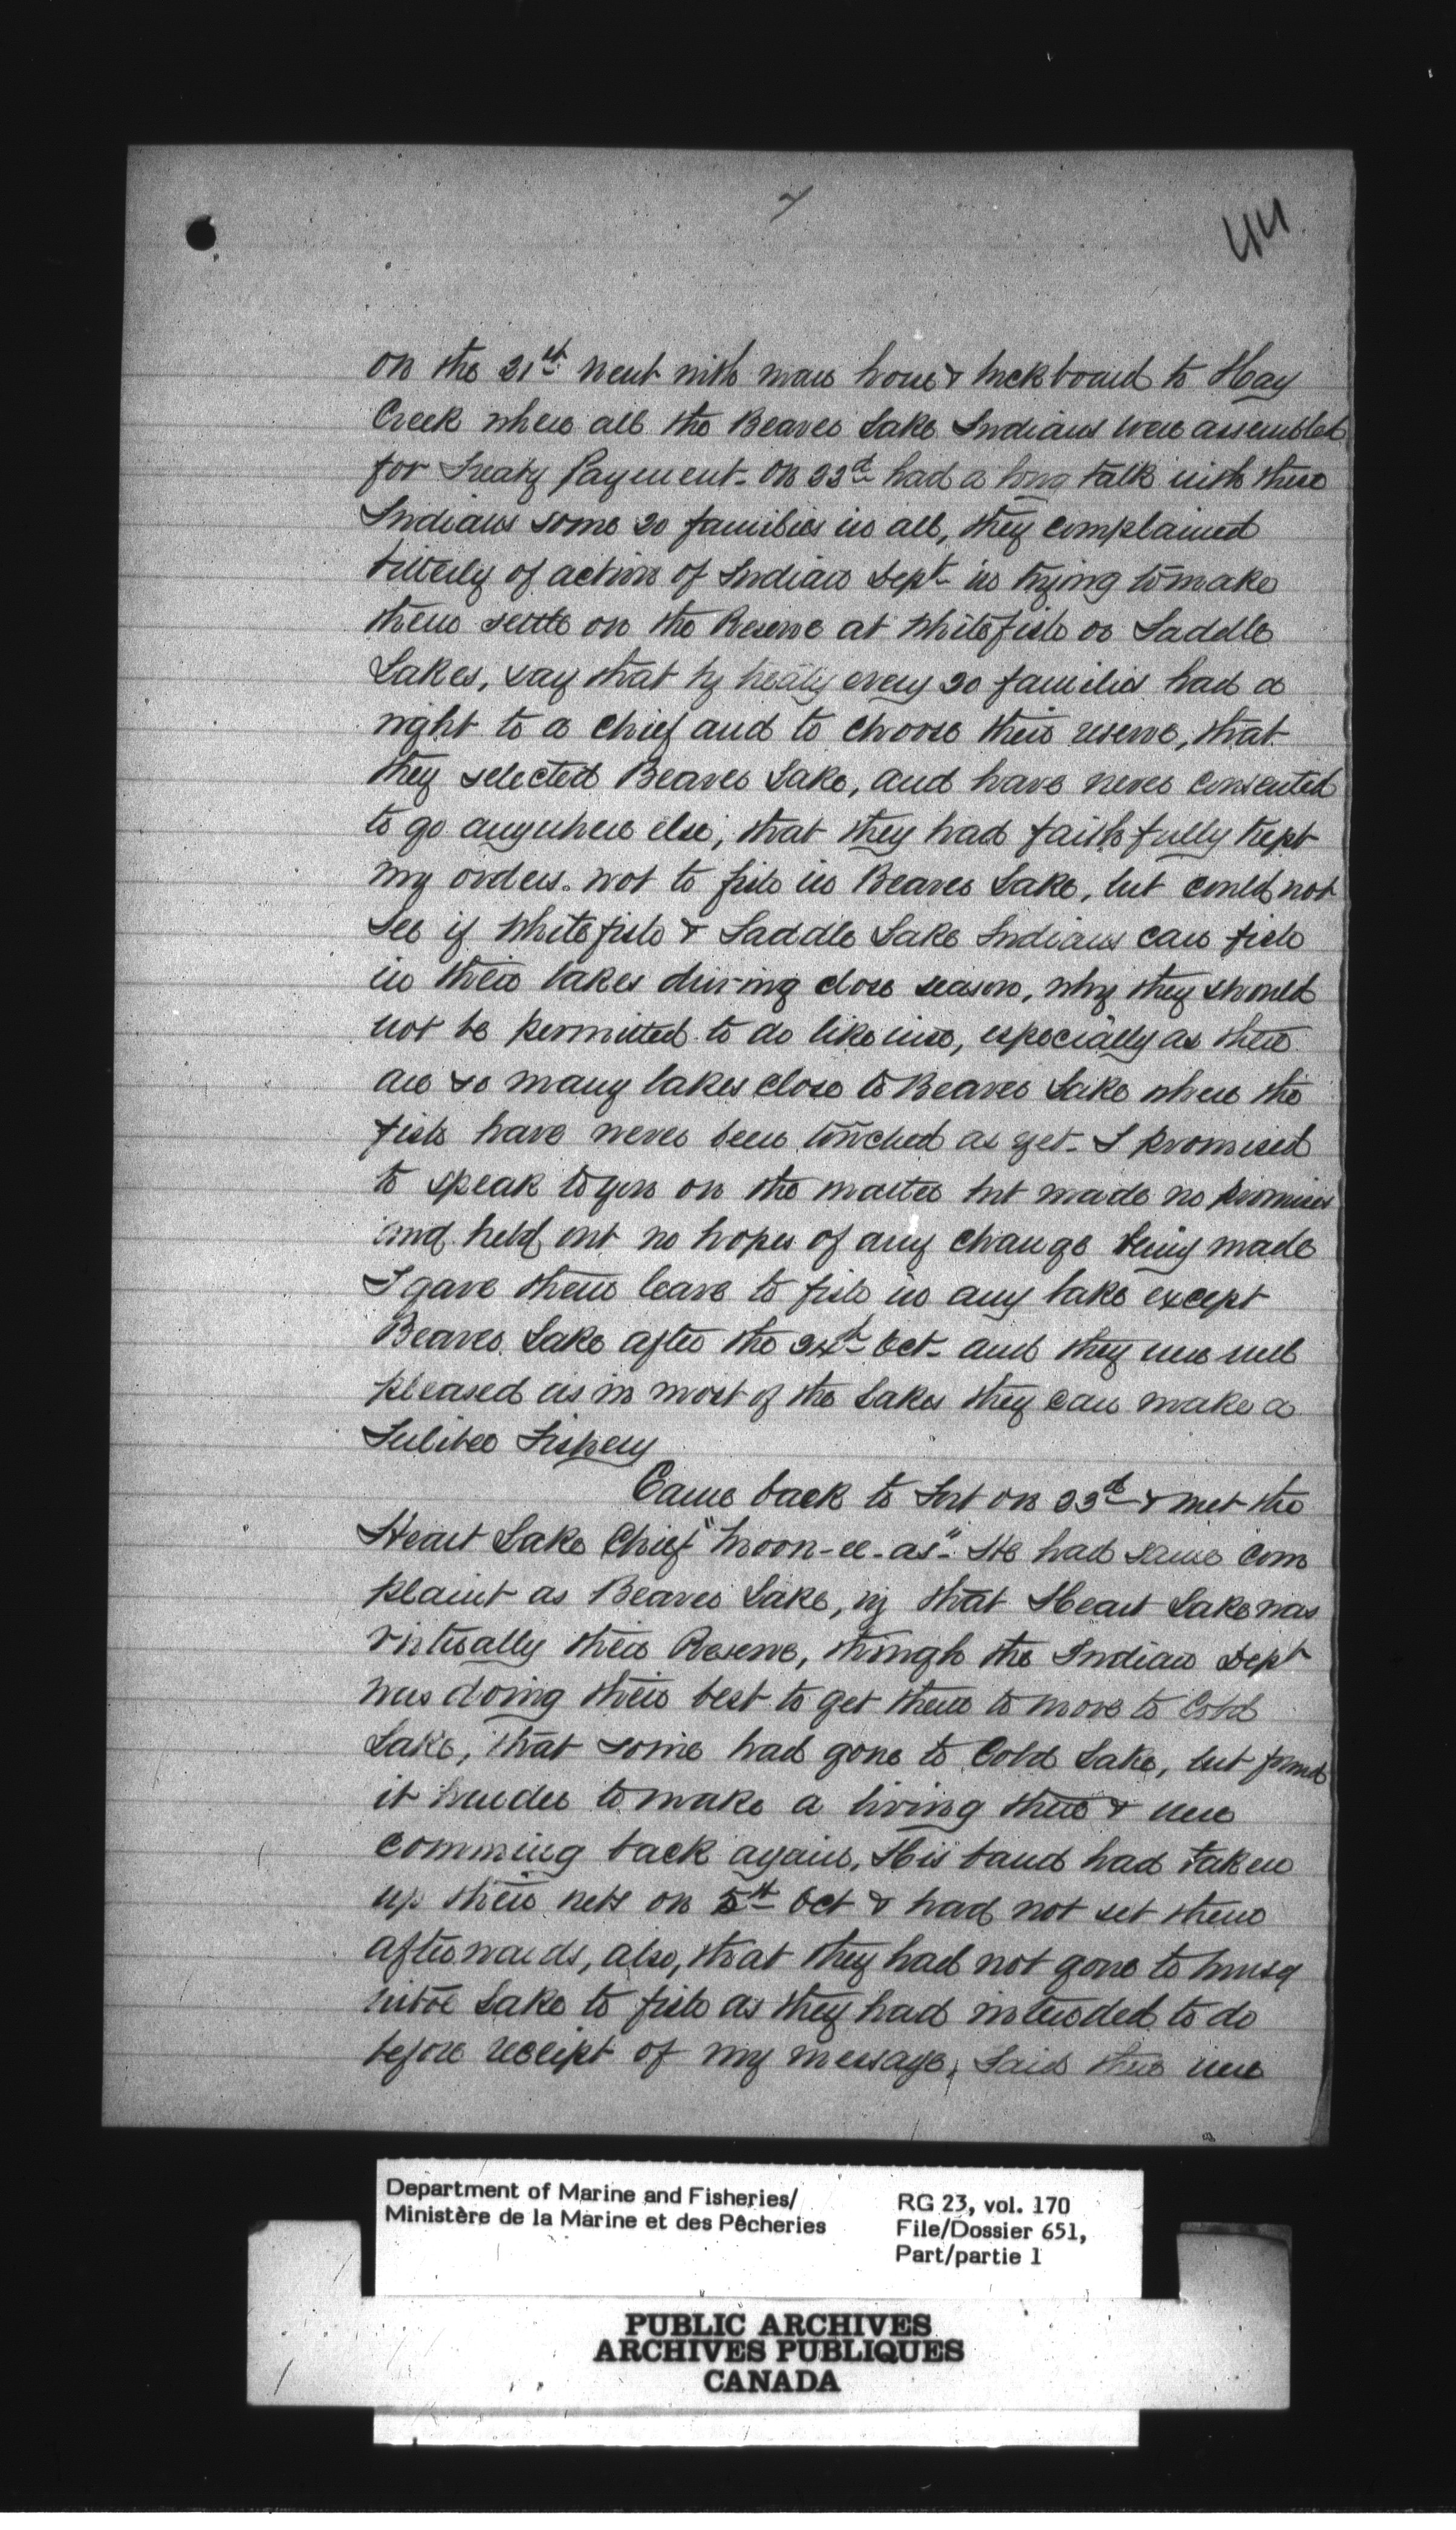 7
44
on the 21st went with man horse & buckboard to Hay
Creek where all the Beaver Lake Indians were assembled
for Treaty Payment - On 22d had a long talk with these
Indians some 20 families in all, they complained
bitterly of action of Indian Dept in trying to make
them settle on the Reserve at Whitefish or Saddle
Lakes, say that by treaty every 20 families had a
right to a Chief and to choose their reserve, that
they selected Beaver Lake, and have never consented
to go anywhere else, that they had faithfully kept
my orders not to fish in Beaver Lake, but could not
see if Whitefish & Saddle Lake Indians can fish
in their lakes during close season, why they should
not be permitted to do likewise, especially as there
are so many lakes close to Beaver Lake where the
fish have never been touched as yet - I promised
to speak to you on the matter but made no promises
and held out no hopes of any change being made
I gave them leave to fish in any lake except
Beaver Lake after the 24th Oct - and they were well
pleased as in most of the Lakes they can make a
Tulibee Fishery
Came back to Fort on 23d & met the
Heart Lake Chief "Moon-ee-as" - He had same com
plaint as Beaver Lake, viz that Heart Lake was
virtually their Reserve, though the Indian Dept
was doing their best to get them to move to Cold
Lake, that some had gone to Cold Lake, but found
it harder to make a living there & were
comming back again, His band had taken
up their nets on 5th Oct & had not set them
afterwards, also, that they had not gone to Musq
uitoe Lake to fish as they had intended to do
before receipt of my message, Said there were
Department of Marine and Fisheries/
Ministère de la Marine et des Pêcheries
RG 23, vol. 170
File/Dossier 651,
Part/partie 1
PUBLIC ARCHIVES
ARCHIVES PUBLIQUES
CANADA